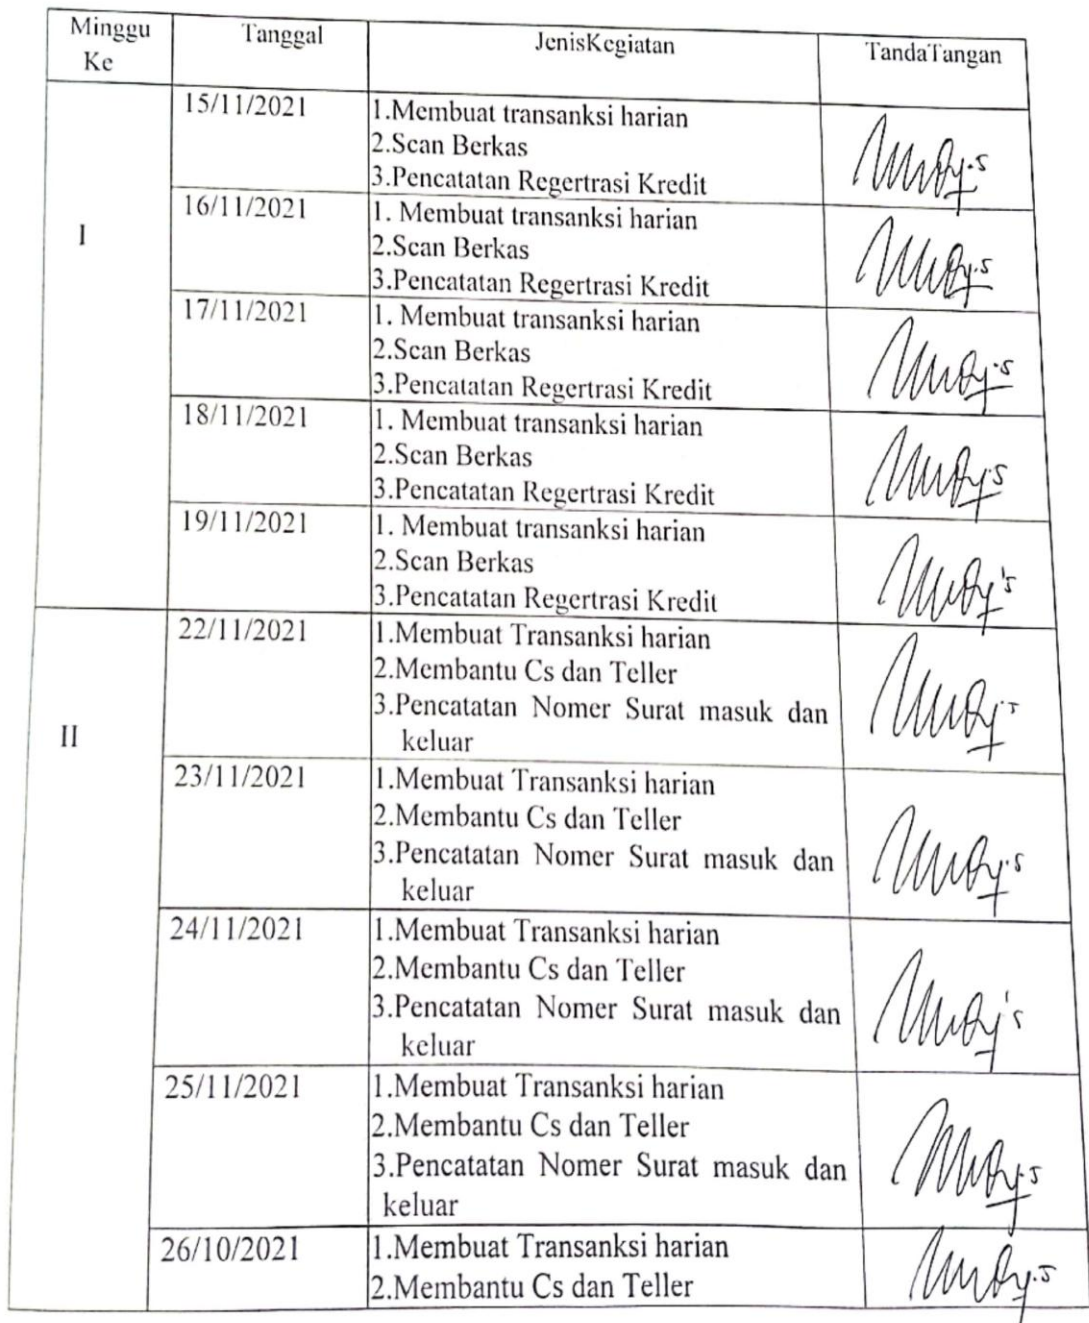 Minggu Ke Tanggal JenisKegiatan TandaTangan
I
15/11/2021 1.Membuat transanksi harian
2.Scan Berkas
3.Pencatatan Regertrasi Kredit
16/11/2021 1. Membuat transanksi harian
2.Scan Berkas
3.Pencatatan Regertrasi Kredit
17/11/2021 1. Membuat transanksi harian
2.Scan Berkas
3.Pencatatan Regertrasi Kredit
18/11/2021 1. Membuat transanksi harian
2.Scan Berkas
3.Pencatatan Regertrasi Kredit
19/11/2021 1. Membuat transanksi harian
2.Scan Berkas
3.Pencatatan Regertrasi Kredit
II
22/11/2021 1.Membuat Transanksi harian
2.Membantu Cs dan Teller
3.Pencatatan Nomer Surat masuk dan
keluar
23/11/2021 1.Membuat Transanksi harian
2.Membantu Cs dan Teller
3.Pencatatan Nomer Surat masuk dan
keluar
24/11/2021 1.Membuat Transanksi harian
2.Membantu Cs dan Teller
3.Pencatatan Nomer Surat masuk dan
keluar
25/11/2021 1.Membuat Transanksi harian
2.Membantu Cs dan Teller
3.Pencatatan Nomer Surat masuk dan
keluar
26/10/2021 1.Membuat Transanksi harian
2.Membantu Cs dan Teller